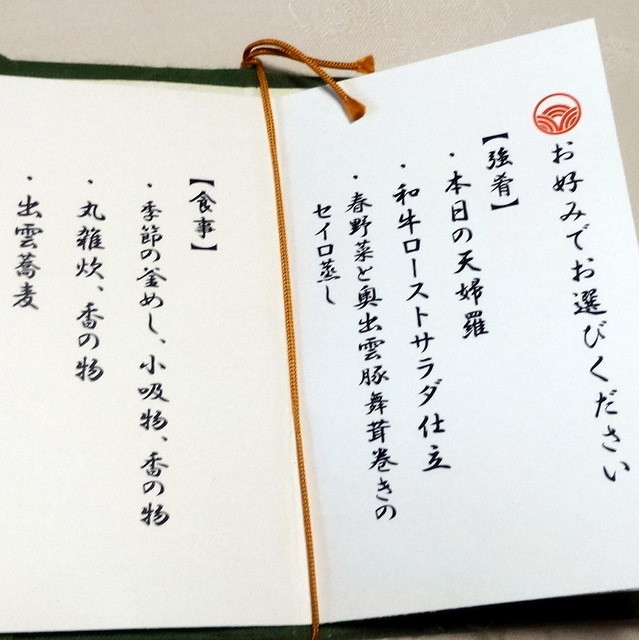 お好みでお選びください
【強肴】
・本日の天婦羅
・和牛ローストサラダ仕立
・春野菜と奥出雲豚舞茸巻きの
セイロ蒸し
【食事】
・季節の釜めし、小吸物、香の物
・丸雑炊、香の物
・出雲蕎麦